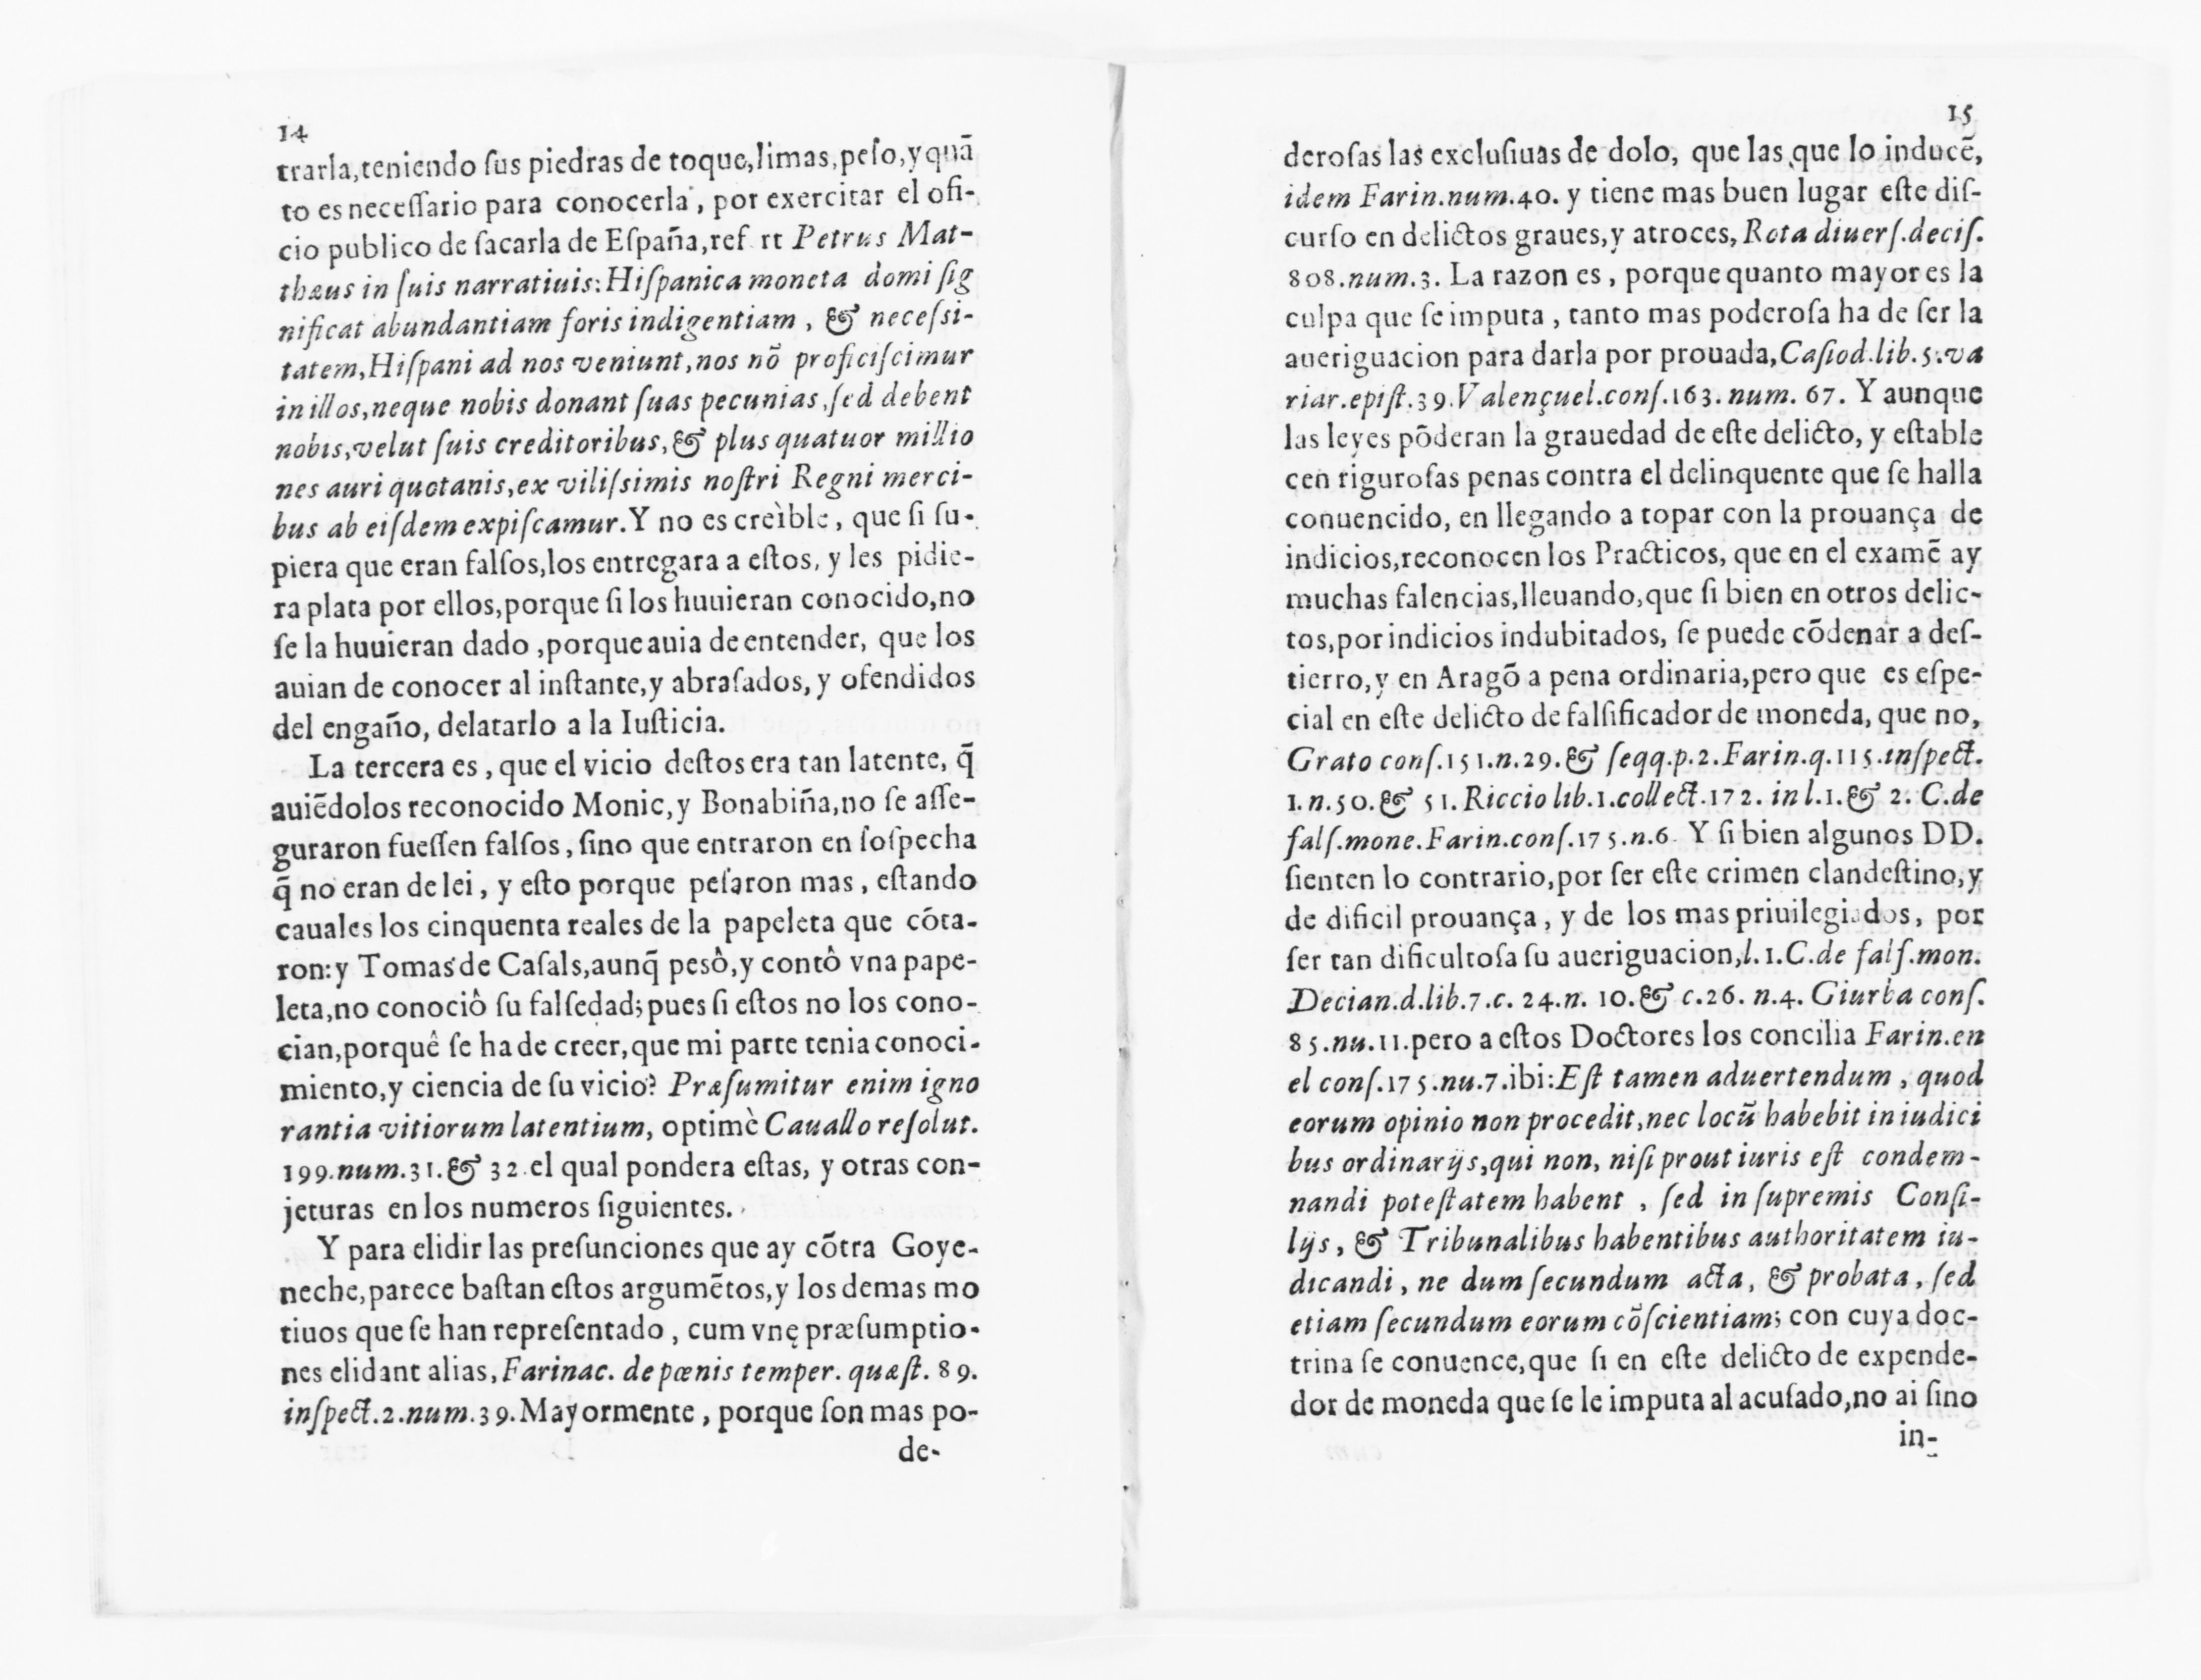 14
trarla,teniendo ſus piedras de toque,limas,peſo,y quã
to es neceſſario para conocerla, por exercitar el ofi-
cio publico de ſacarla de Eſpaña,ref rt Petrus Mat-
thæus in ſuis narratiuis:Hiſpanica moneta domi ſig
nificat abundantiam foris indigentiam, & neceſsi-
tatem,Hiſpani ad nos veniunt,nos nõ proficiſcimur
in illos,neque nobis donant ſuas pecunias,ſed debent
nobis,velut ſuis creditoribus,& plus quatuor millio
nes auri quotanis,ex viliſsimis noſtri Regni merci-
bus ab eiſdem expiſcamur.Y no es creìble, que ſi ſu-
piera que eran falſos,los entregara a eſtos, y les pidie-
ra plata por ellos,porque ſi los huuieran conocido,no
ſe la huuieran dado,porque auia de entender, que los
auian de conocer al inſtante,y abraſados, y ofendidos
del engaño, delatarlo a la Iuſticia.
La tercera es, que el vicio deſtos era tan latente, q̃
auiẽdolos reconocido Monic,y Bonabiña,no ſe aſſe-
guraron fueſſen falſos, ſino que entraron en ſoſpecha
q̃ no eran de lei, y eſto porque peſaron mas, eſtando
cauales los cinquenta reales de la papeleta que cõta-
ron:y Tomas de Caſals,aunq̃ pesô,y contô vna pape-
leta,no conociô ſu falſedad;pues ſi eſtos no los cono-
cian,porquê ſe ha de creer,que mi parte tenia conoci-
miento,y ciencia de ſu vicio? Præſumitur enim igno
rantia vitiorum latentium, optimè Cauallo reſolut.
199.num.31.& 32.el qual pondera eſtas, y otras con-
jeturas en los numeros ſiguientes.
Y para elidir las preſunciones que ay cõtra Goye-
neche,parece baſtan eſtos argumẽtos,y los demas mo
tiuos que ſe han repreſentado, cum vnę præſumptio-
nes elidant alias,Farinac. de pœnis temper. quæſt. 89.
inſpect.2.num.39.Mayormente, porque ſon mas po-
de-
15
deroſas las excluſiuas de dolo, que las que lo inducẽ,
idem Farin.num.40. y tiene mas buen lugar eſte diſ-
curſo en delictos graues,y atroces, Rota diuerſ.deciſ.
808.num.3. La razon es, porque quanto mayor es la
culpa que ſe imputa, tanto mas poderoſa ha de ſer la
aueriguacion para darla por prouada,Caſiod.lib.5.va
riar.epiſt.39.Valençuel.conſ.163.num. 67. Y aunque
las leyes põderan la grauedad de eſte delicto, y eſtable
cen riguroſas penas contra el delinquente que ſe halla
conuencido, en llegando a topar con la prouança de
indicios,reconocen los Practicos, que en el examẽ ay
muchas falencias,lleuando,que ſi bien en otros delic-
tos,por indicios indubitados, ſe puede cõdenar a deſ-
tierro,y en Aragõ a pena ordinaria,pero que es eſpe-
cial en eſte delicto de falſificador de moneda, que no,
Grato conſ.151.n.29.& ſeqq.p.2.Farin.q.115.inſpect.
1.n.50.& 51.Riccio lib.1.collect.172. in l.1.& 2. C.de
falſ.mone.Farin.conſ.175.n.6. Y ſi bien algunos DD.
ſienten lo contrario,por ſer eſte crimen clandeſtino,y
de dificil prouança, y de los mas priuilegiados, por
ſer tan dificultoſa ſu aueriguacion,l.1.C.de falſ.mon.
Decian.d.lib.7.c. 24.n. 10.& c.26. n.4. Giurba conſ.
85.nu.11.pero a eſtos Doctores los concilia Farin.en
el conſ.175.nu.7.ibi:Eſt tamen aduertendum, quod
eorum opinio non procedit,nec locũ habebit in iudici
bus ordinarijs,qui non, niſi prout iuris eſt condem-
nandi poteſtatem habent, ſed in ſupremis Conſi-
lijs, & Tribunalibus habentibus authoritatem iu-
dicandi, ne dum ſecundum acta, & probata, ſed
etiam ſecundum eorum cõſcientiam; con cuya doc-
trina ſe conuence,que ſi en eſte delicto de expende-
dor de moneda que ſe le imputa al acuſado,no ai ſino
in-